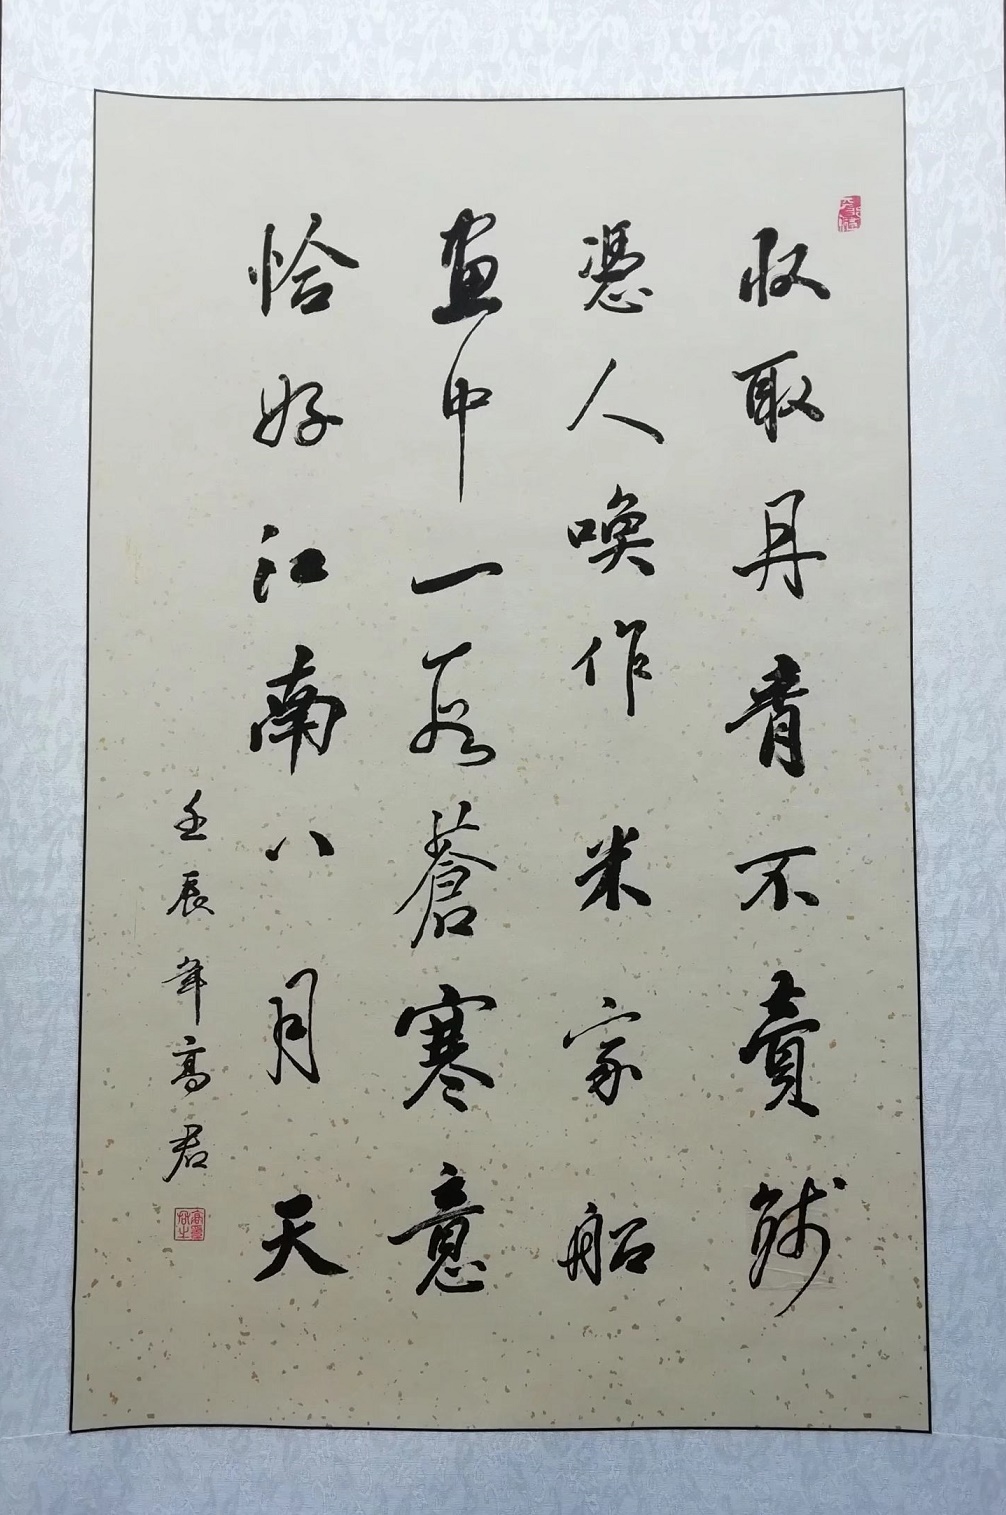 收取丹青不賣錢
憑人喚作米家船
畫中一段蒼寒意
恰好江南八月天
壬辰年高君